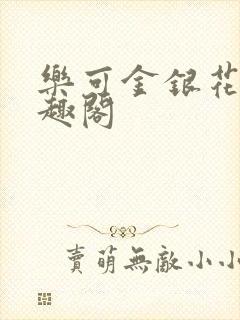 樂可金銀花
趣閣
賣萌無敵小小